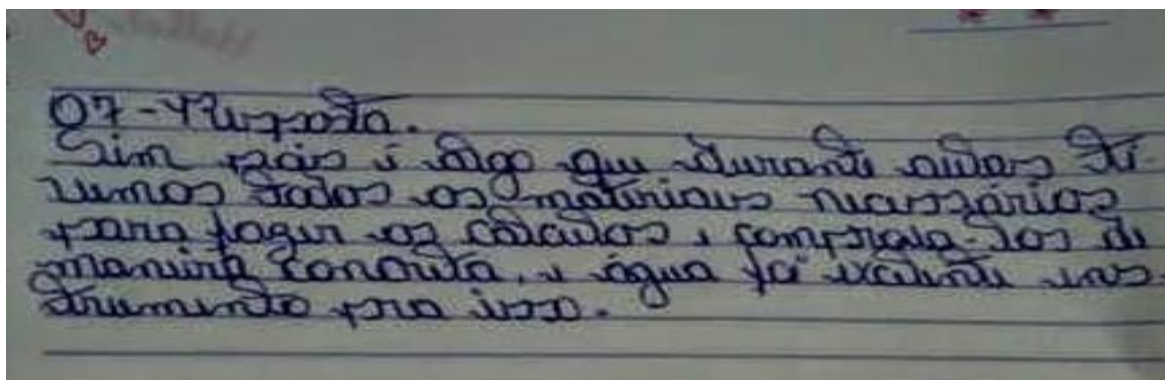 07 - Resposta.
Sim pois é algo que durante aulas ti-
vemos todos os materiais necessários
para fazer os cálculos e comprova-los de
maneira concreta, e água foi exelente ins-
trumento pra isso.